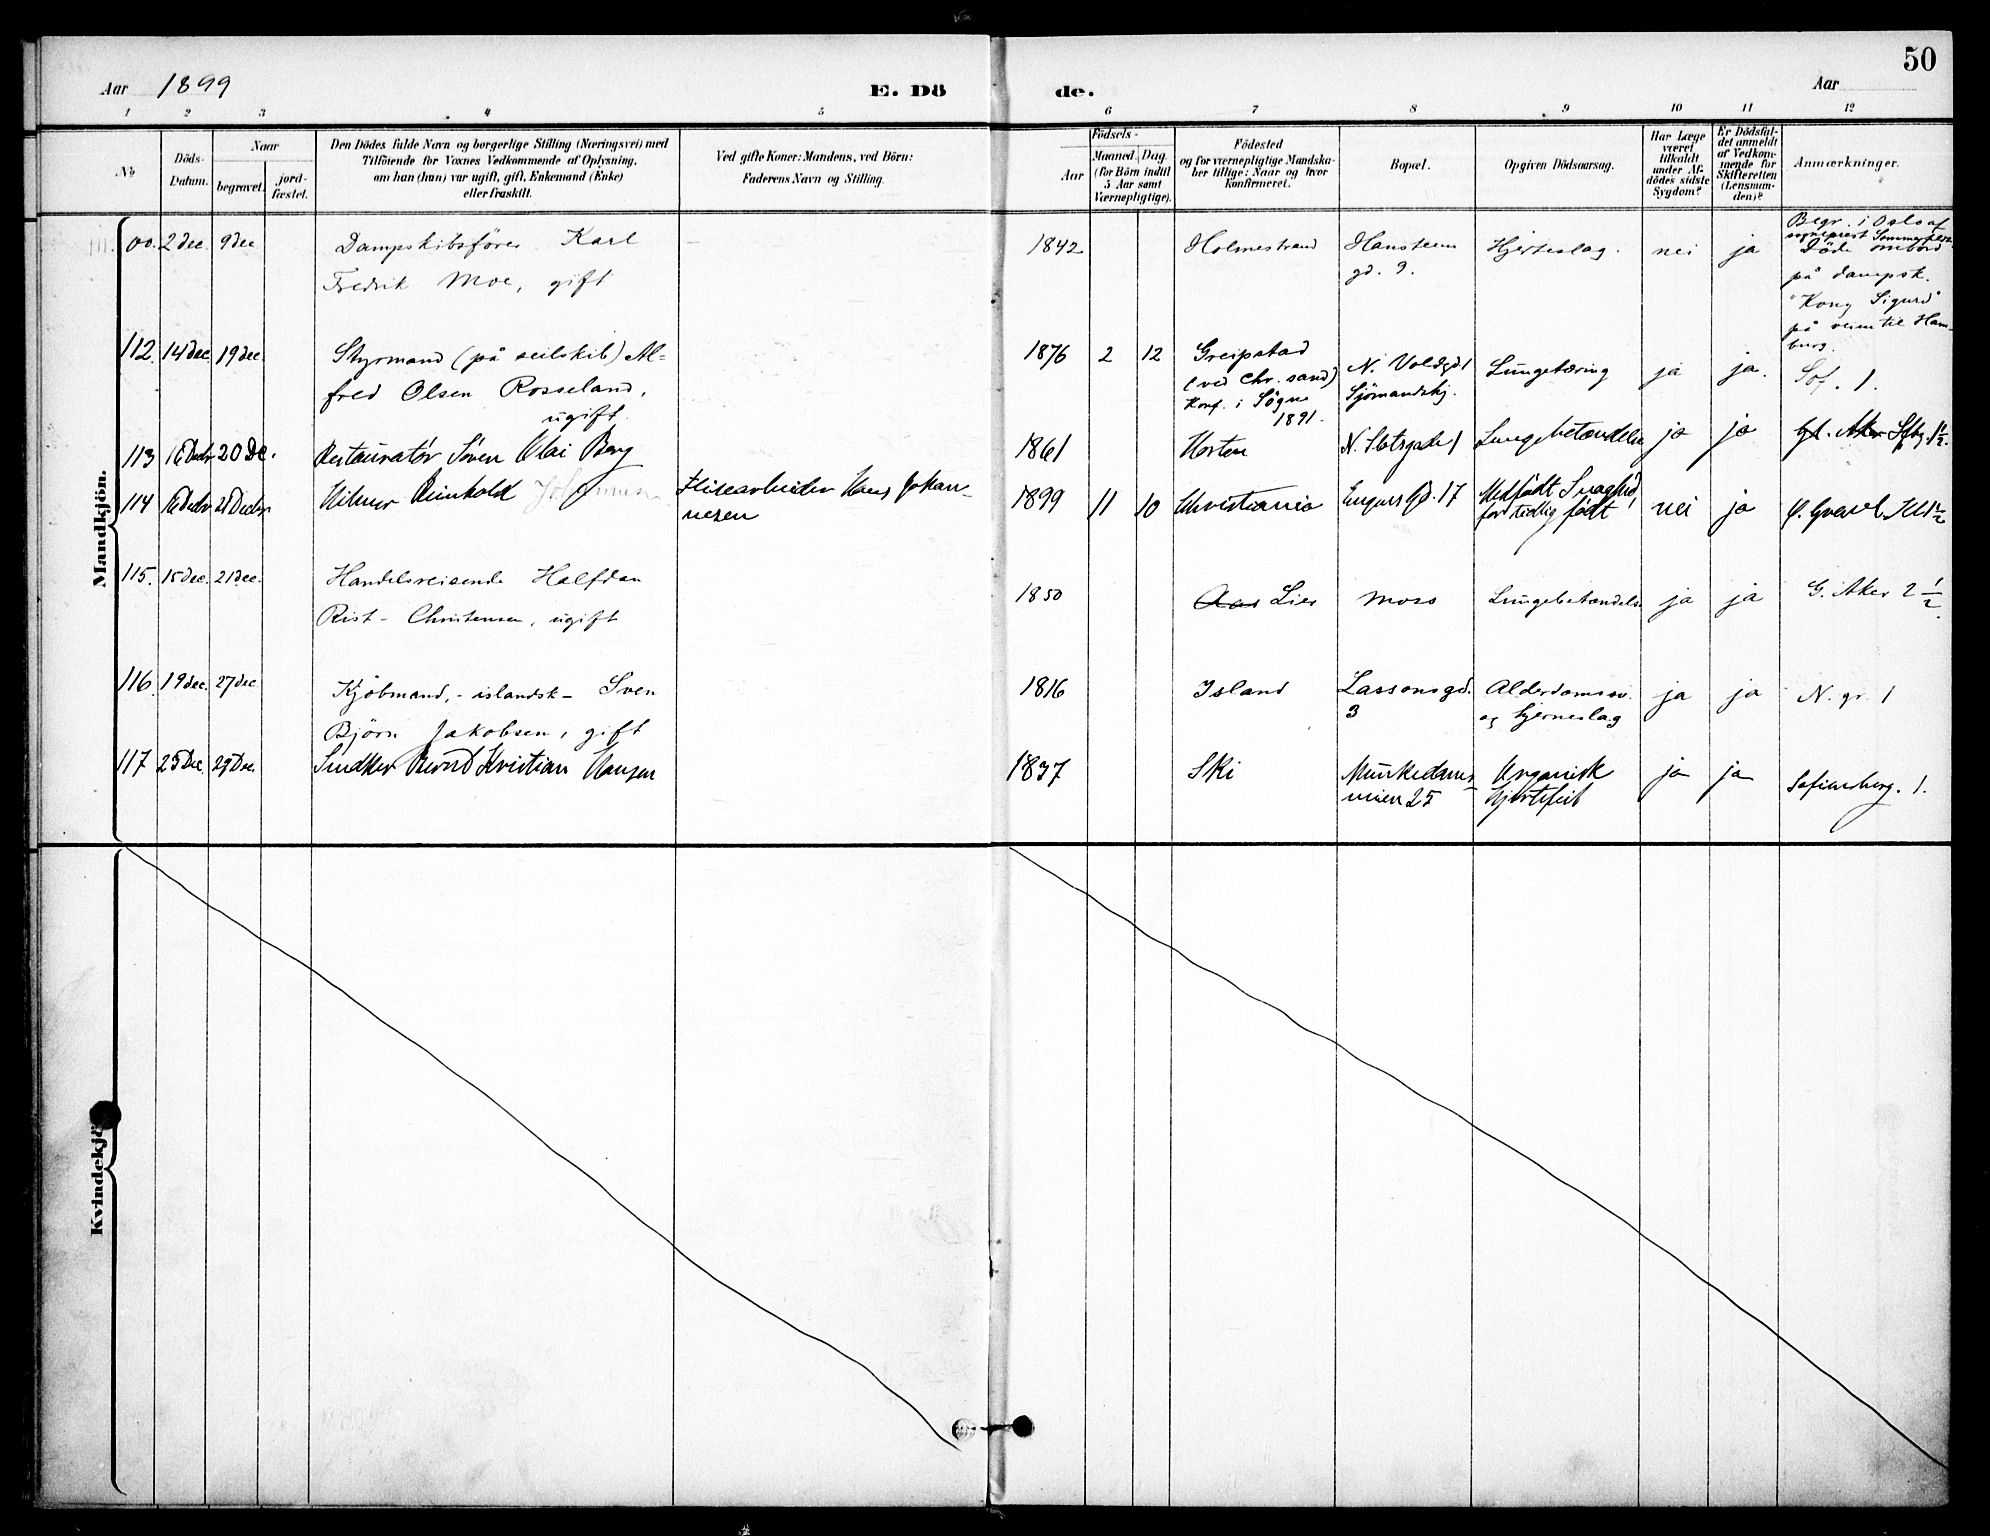 50
Aar 1899
E. Dö
de.
Aar
1 2 3 4 5 6 7 8 9 10 11 12
No
Döds-
Datum.
Naar
begravet.
jord-
fæstet.
Den Dödes fulde Navn og borgerlige Stilling (Næringsvei) med
Tilföiende for Voxnes Vedkommende af Oplysning,
om han (hun) var ugift, gift, Enkemand (Enke)
eller fraskilt.
Ved gifte Koner: Mandens, ved Börn:
Faderens Navn og Stilling.
Födsels-
Aar
Maaned. Dag.
(for Börn indtil
5 Aar samt
Værnepligtige).
Födested
og for værnepligtige Mandska-
ber tillige: Naar og hvor
konfirmeret.
Bopæl.
Opgiven Dödsaarsag.
Har Læge
været
tilkaldt
under Af-
dödes sidste
Sygdom?
Er Dödsfal-
det anmeldt
af Vedkom-
mende for
Skifteretten
(Lensman-
den)?
Anmærkninger.
Mandkjön.
2 dec. 9 dec
Dampskibsförer Karl
Fredrik Moe, gift
1842
Holmestrand
Hansteens
gd. 9.
Hjerteslag.
nei
ja
Begr. i Oslo af
sogneprest Sommerfeldt
Döde ombord
på dampsk.
"Kong Sigurd"
på veien til Ham-
burg.
112. 14 dec. 19 dec.
Styrmand (på seilskib) Al-
fred Olsen Rosseland,
ugift.
1876 2 12
Greipstad
(ved Chr.sand)
Konf. i Sögne
1891.
N. Voldgd 1
Sjömandshj.
Lungetæring
ja
ja.
Sof. 1.
113 16 Decbr 20 De.
Restauratör Sören Olai Berg
1861
Horten
N. Slotsgade 1
Lungebetændelse
ja
ja
Gl. Aker Sfbg. 1 1/2.
114 16 Decbr 21 Decbr
Hilmar Reinhold Johannesen
Flisearbeider Hans Johan-
nesen
1899 11 10
Christiania
Gd. 17
Medfödt Svaghed,
for tidlig födt
nei
ja
115. 15 dec. 21 dec.
Handelsreisende Halfdan
Rist-Christensen, ugift
1850
Aas Lier
Moss
Lungebetændelse
ja
ja
G. Aker 2 1/2.
116. 19 dec. 27 dec
Kjöbmand, - islandsk - Sven
Björn Jakobsen, gift
1816
Island
Lassonsgd.
3
Alderdomssv.
og hjerneslag
ja
ja
N. gr. 1
117 25 Dec 29 Dec.
Snedker Bernt Kristian Hansen
1837
Ski
Munkedams-
veien 25
Organisk
Hjertefeil
ja
ja
Sofienberg. 1.
Kvindekjö